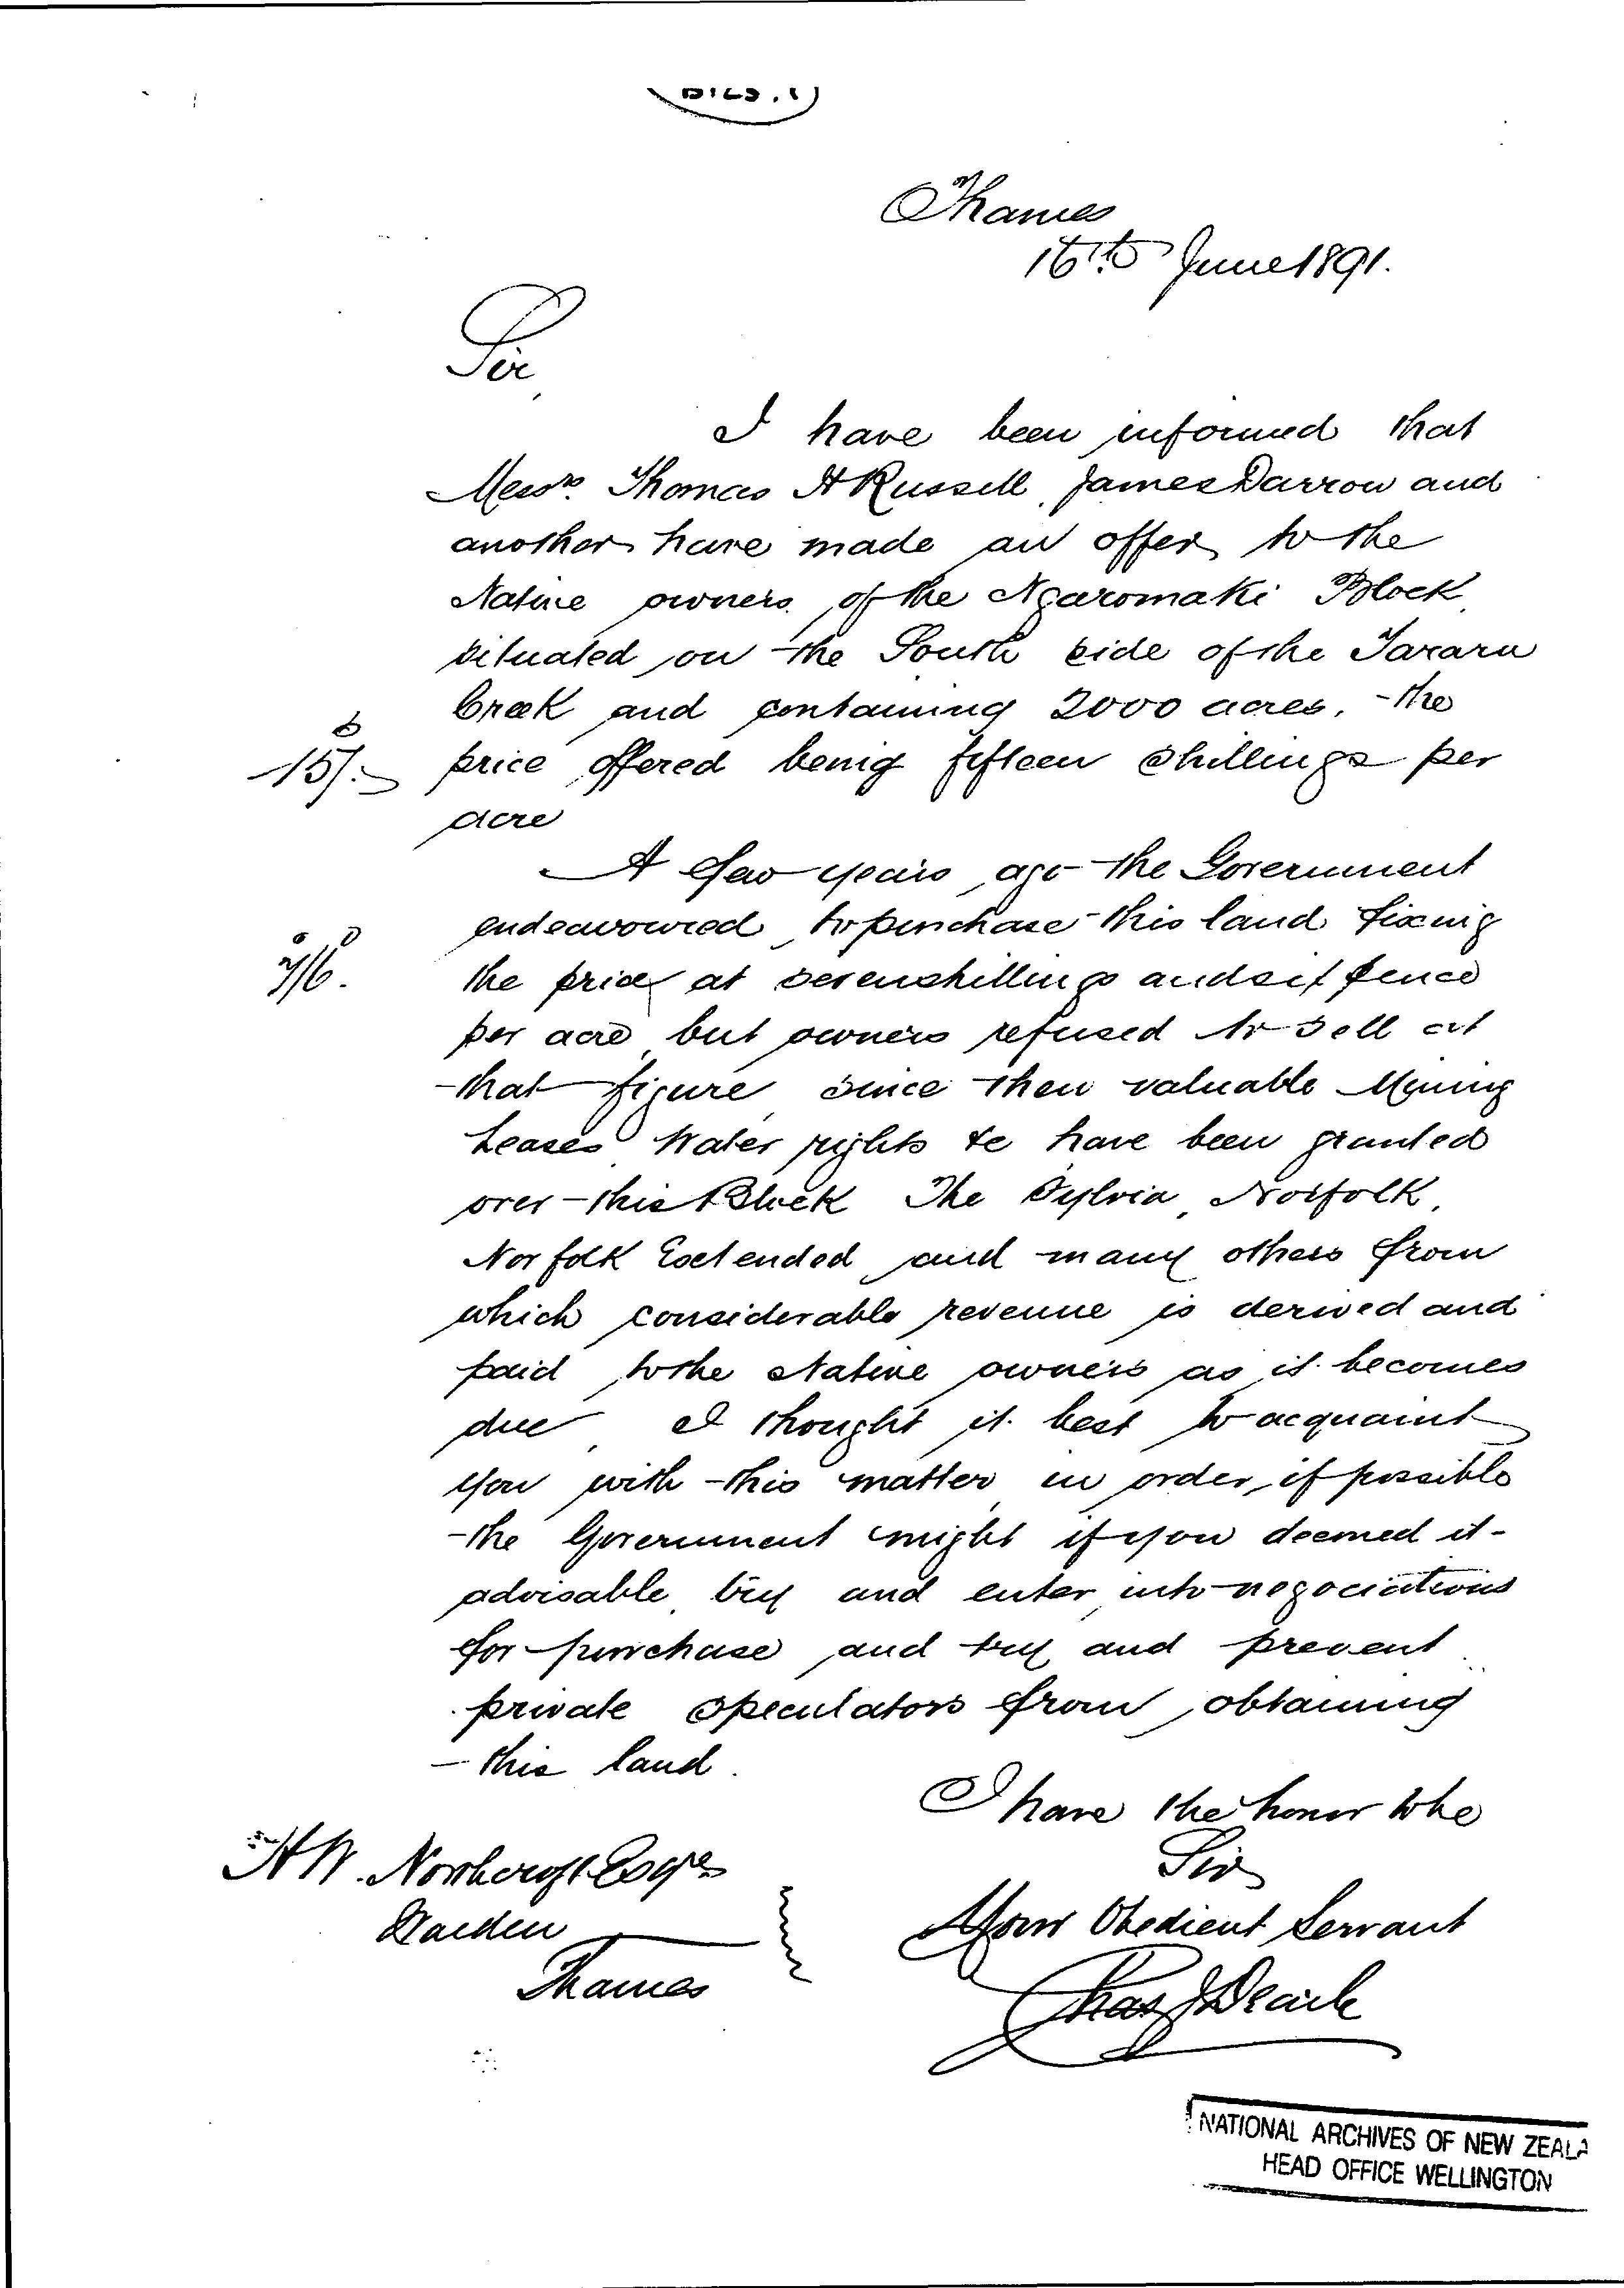 Thames
16th June 1891.
Sir,
I have been informed that
Messrs. Thomas A Russell, James Darrow and
another have made an offer to the
Native owners of the Ngaromaki Block,
situated on the South side of the Tararu
Creek and containing 2000 acres, the
15/-
price offered being fifteen shillings per
acre
A few years ago the Government
endeavoured to purchase this land fixing
7/6.
the price at seven shillings and six pence
per acre, but owners refused to sell at
that figure, since then valuable Mining
Leases Water rights &c have been granted
over this Block The Sylvia, Norfolk,
Norfolk Extended, and many others from
which considerable revenue is derived and
paid to the Native owners as it becomes
due, I thought it best to acquaint
you with this matter, in order, if possible
the Government might if you deemed it
advisable, try and enter into negociations
for purchase and try and prevent
private speculators from obtaining
this land.
I have the honor to be
Sir
Your Obedient Servant
Chas J Dearle
H W. Northcroft Esqre
Warden
Thames
NATIONAL ARCHIVES OF NEW ZEALA
HEAD OFFICE WELLINGTON